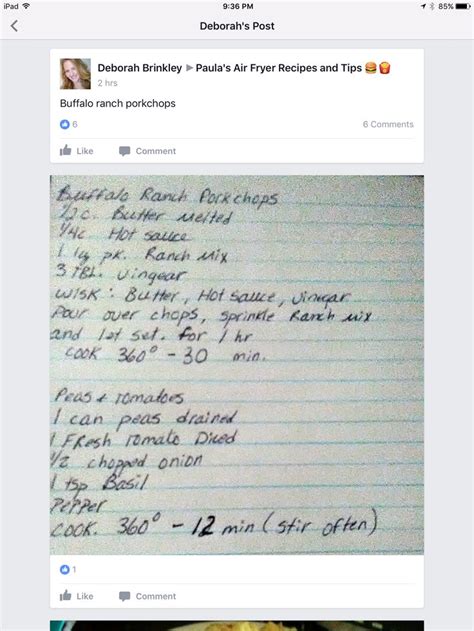 iPad 9:36 PM 85%
Deborah's Post
Deborah Brinkley ▶ Paula's Air Fryer Recipes and Tips 🍔🍟
2 hrs
Buffalo ranch porkchops
6 6 Comments
Like Comment
Buffalo Ranch Porkchops
1/2 c. Butter melted
1/4c Hot sauce
1 lg pk. Ranch Mix
3 TBL. vingear
wisk: Butter, Hot sauce, vinegar
Pour over chops, sprinkle Ranch mix
and let set. for 1 hr
COOK 360° - 30 min.
Peas & tomatoes
1 can peas drained
1 FResh tomato Diced
1/2 chopped onion
1 tsp Basil
Pepper
COOK. 360° - 12 min (stir often)
1
Like Comment